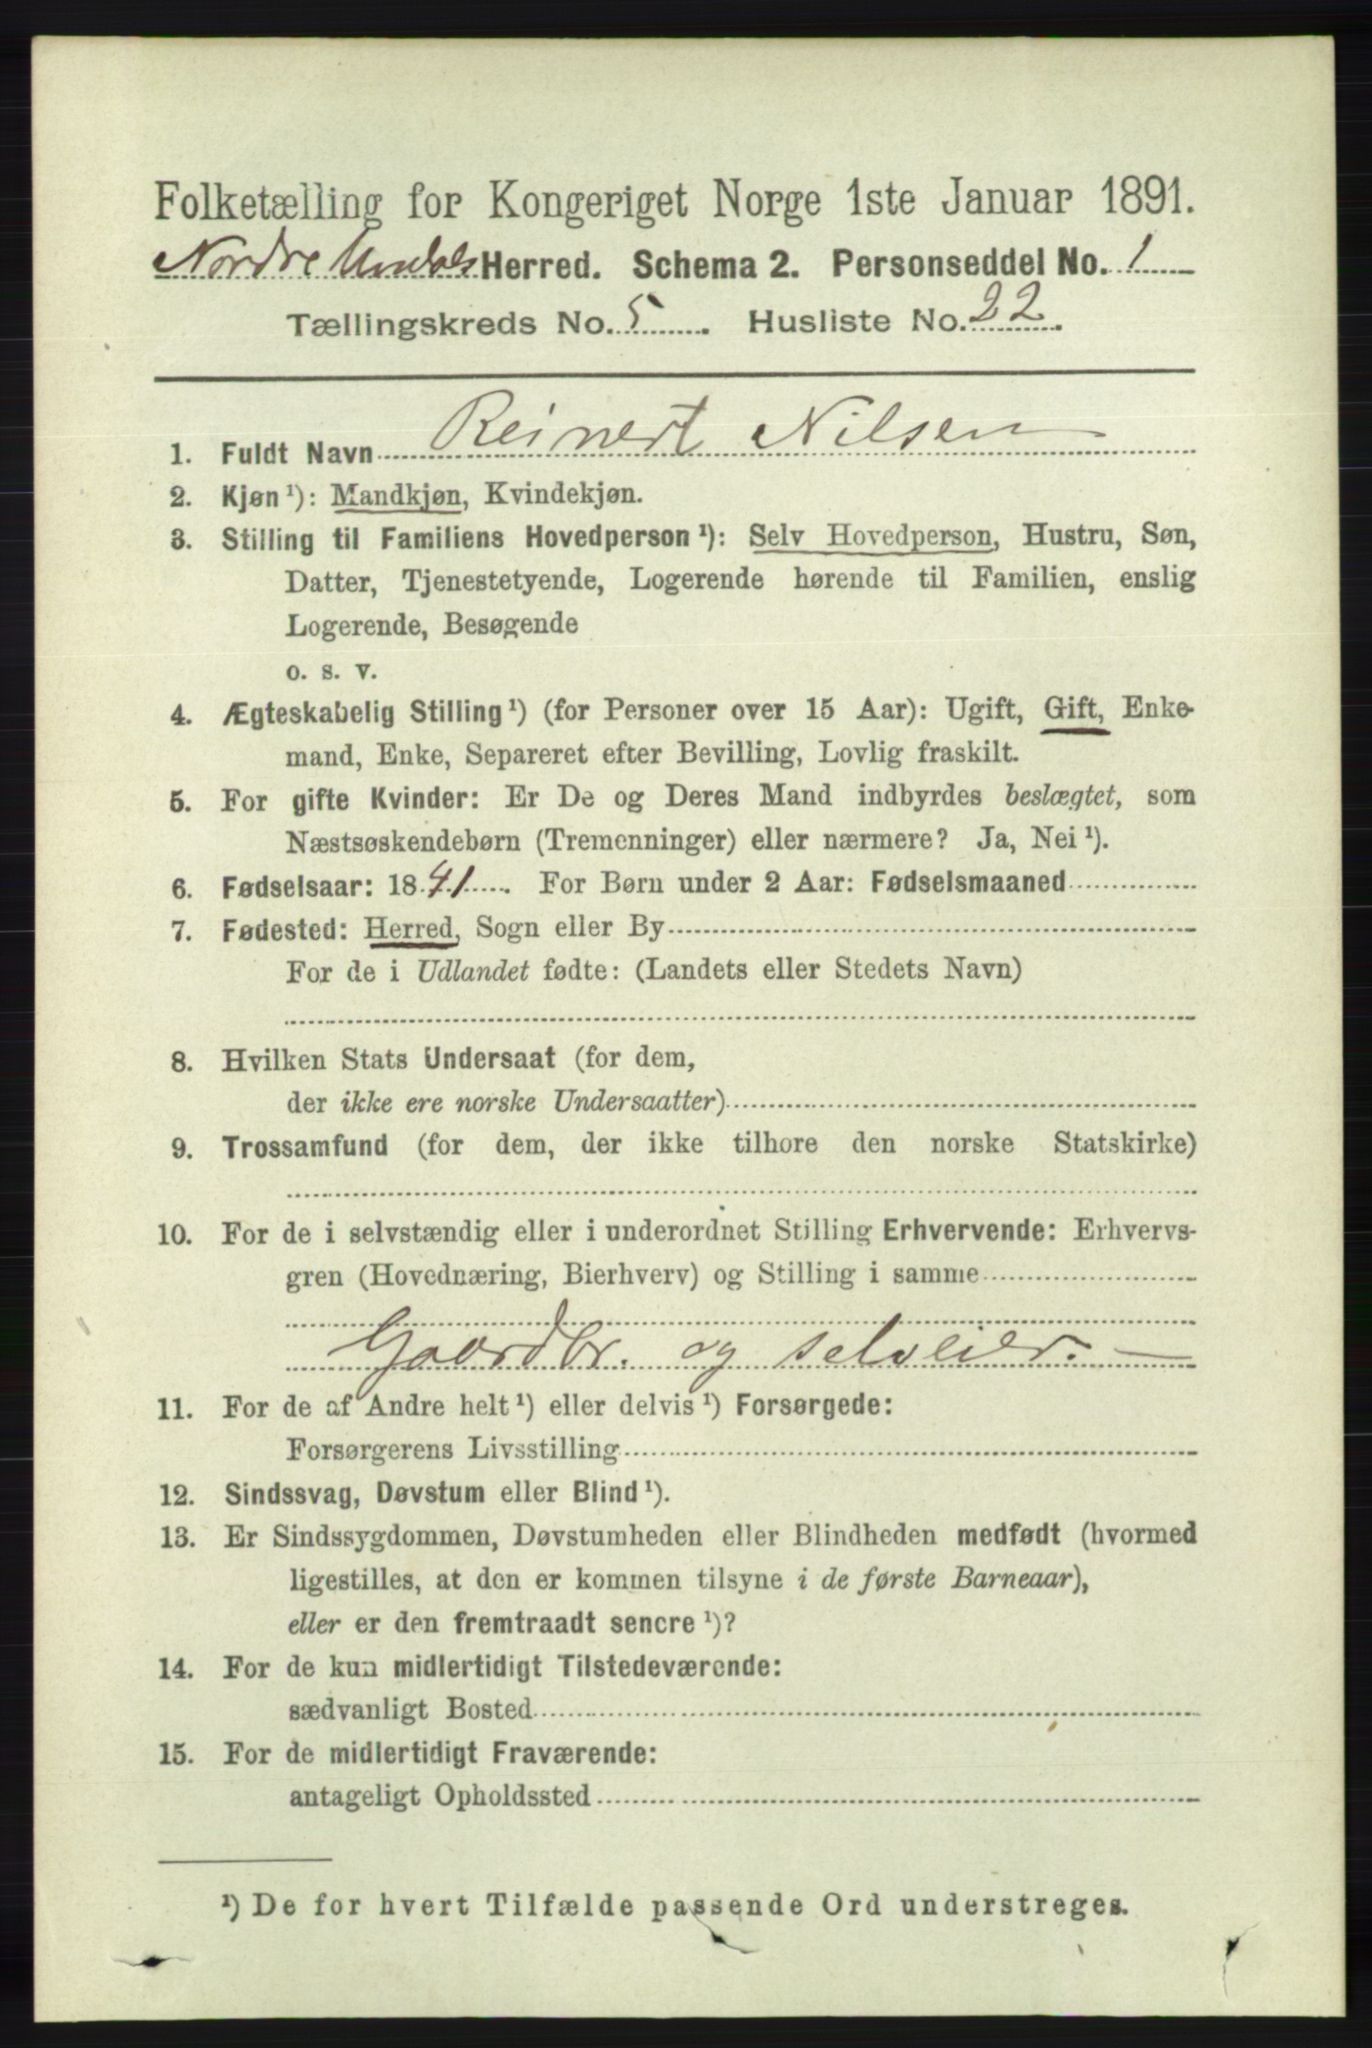 Folketælling for Kongeriget Norge 1ste Januar 1891.
Nordre Undals Herred. Schema 2. Personseddel No. 1
Tællingskreds No. 5. Husliste No. 22.
1. Fuldt Navn Reinert Nilsen
2. Kjøn ¹): Mandkjøn, Kvindekjøn.
3. Stilling til Familiens Hovedperson ¹): Selv Hovedperson, Hustru, Søn,
Datter, Tjenestetyende, Logerende hørende til Familien, enslig
Logerende, Besøgende
o. s. v.
4. Ægteskabelig Stilling ¹) (for Personer over 15 Aar): Ugift, Gift, Enke-
mand, Enke, Separeret efter Bevilling, Lovlig fraskilt.
5. For gifte Kvinder: Er De og Deres Mand indbyrdes beslægtet, som
Næstsøskendebørn (Tremenninger) eller nærmere? Ja, Nei ¹).
6. Fødselsaar: 1841. For Børn under 2 Aar: Fødselsmaaned
7. Fødested: Herred, Sogn eller By
For de i Udlandet fødte: (Landets eller Stedets Navn)
8. Hvilken Stats Undersaat (for dem,
der ikke ere norske Undersaatter)
9. Trossamfund (for dem, der ikke tilhøre den norske Statskirke)
10. For de i selvstændig eller i underordnet Stilling Erhvervende: Erhvervs-
gren (Hovednæring, Bierhverv) og Stilling i samme
Gaardbr. og selveier. —
11. For de af Andre helt ¹) eller delvis ¹) Forsørgede:
Forsørgerens Livsstilling
12. Sindssvag, Døvstum eller Blind ¹).
13. Er Sindssygdommen, Døvstumheden eller Blindheden medfødt (hvormed
ligestilles, at den er kommen tilsyne i de første Barneaar),
eller er den fremtraadt senere ¹)?
14. For de kun midlertidigt Tilstedeværende:
sædvanligt Bosted
15. For de midlertidigt Fraværende:
antageligt Opholdssted
¹) De for hvert Tilfælde passende Ord understreges.